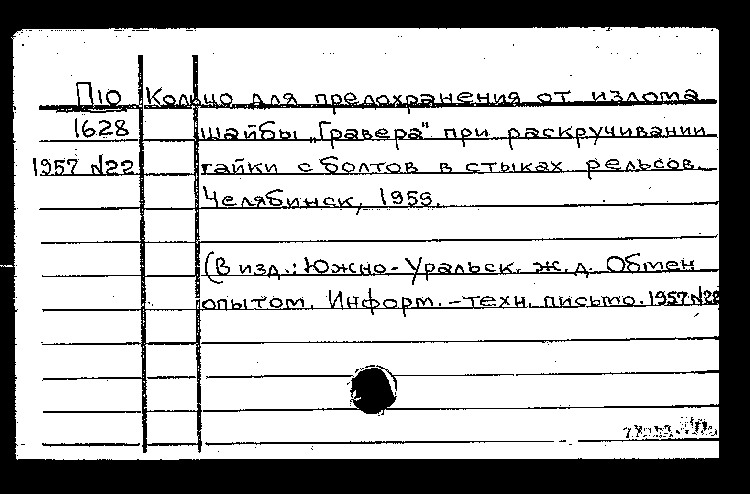 П10 Кольцо для предохранения от излома
1628 шайбы „Гравера" при раскручивании
1957 №22 гайки с болтов в стыках рельсов.
Челябинск, 1959.
(В изд.: Южно-Уральск. ж.д. Обмен
опытом. Информ.-техн. письмо. 1957 №22